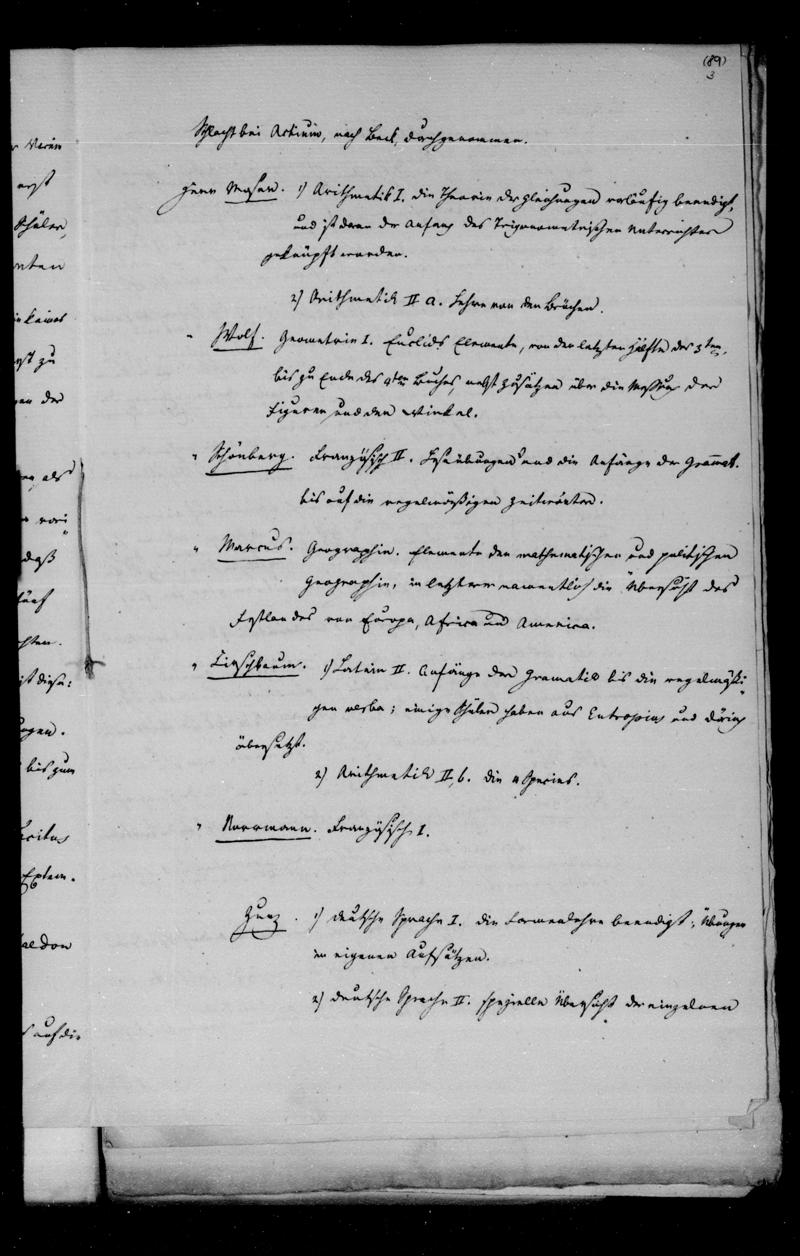 (89)
3
r Verein
erst
Schüler,
nten
in keines
st zu
en der
als
vor¬
daß
fünf
chten.
ist diese:
ngen.
bis zum
Tacitus
Extem.
auf die
Schlacht bei Actium, nach Beck, durchgenommen.
Herr Moser. 1) Arithmetik I. die Theorie der Gleichungen vorläufig beendigt,
und ist daran der Anfang des Trigonometrischen Unterrichtes
geknüpft worden.
2) Arithmetik II a. Lehre von den Brüchen.
" Wolf. Geometrie I. Euclids Elemente, von der letzten Hälfte des 3ten,
bis zu Ende des 4ten Buches, nebst Zusätzen über die Messung der
Figuren und der Winkel.
" Schönberg. Französisch II. Leseübungen und die Anfänge der Gramat.
bis auf die regelmäßigen Zeitwörter.
" Marcus. Geographie. Elemente der mathematischen und politischen
Geographie, in letzterer namentlich die Übersicht des
Festlandes von Europa, Africa und America.
" Kirschbaum. 1) Latein II. Anfänge der Gramatik bis die regelmäßi¬
gen verba; einige Schüler haben aus Eutropius und Döring
übersetzt.
2) Arithmetik II, b. die 4 Species.
" Norrmann. Französisch I.
Zunz. 1) deutsche Sprache I. die Formenlehre beendigt; Übungen
in eigenen Aufsätzen.
2) deutsche Sprache II. spezielle Übersicht der einzelnen